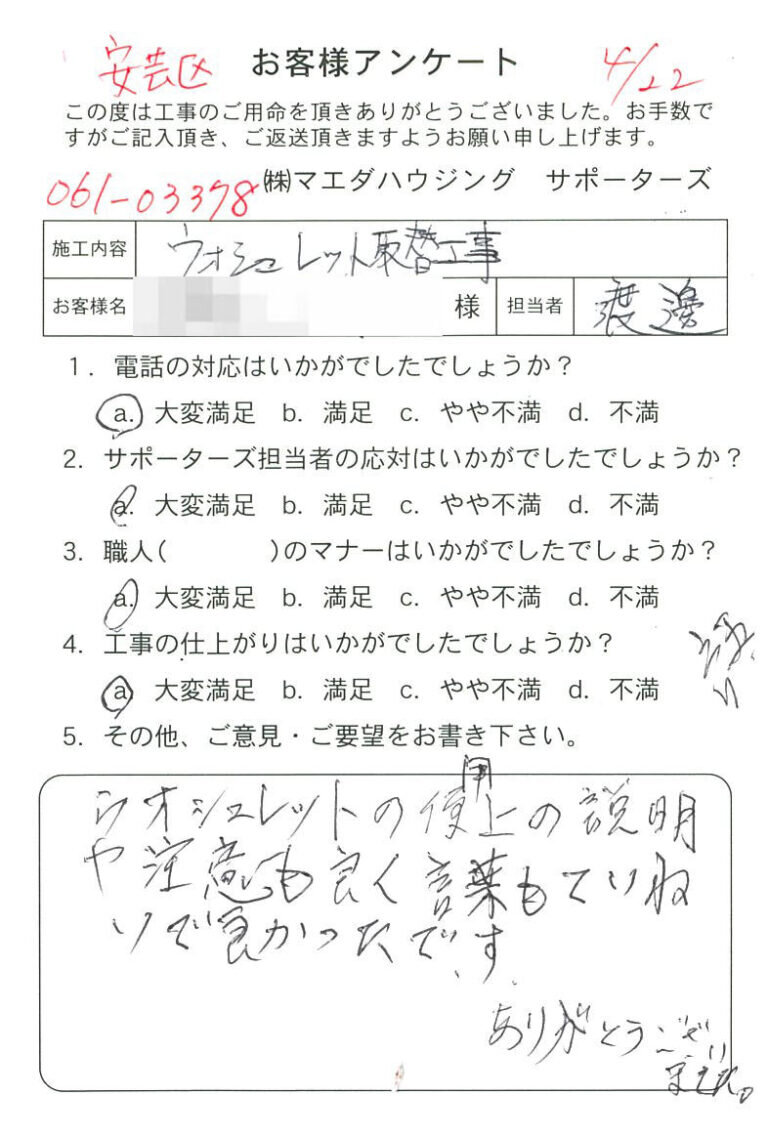 安芸区 お客様アンケート 4/22
この度は工事のご用命を頂きありがとうございました。お手数で
すがご記入頂き、ご返送頂きますようお願い申し上げます。
061-03378 ㈱マエダハウジング サポーターズ
施工内容 ウオシュレット取替工事
お客様名 様 担当者 渡邊
1. 電話の対応はいかがでしたでしょうか?
a. 大変満足 b. 満足 c. やや不満 d. 不満
2. サポーターズ担当者の応対はいかがでしたでしょうか?
a. 大変満足 b. 満足 c. やや不満 d. 不満
3. 職人( )のマナーはいかがでしたでしょうか?
a. 大変満足 b. 満足 c. やや不満 d. 不満
4. 工事の仕上がりはいかがでしたでしょうか?
a 大変満足 b. 満足 c. やや不満 d. 不満
5. その他、ご意見・ご要望をお書き下さい。
ウオシュレットの使用上の説明
や注意も良く言葉もていね
いで良かったです
ありがとうござい
ました。